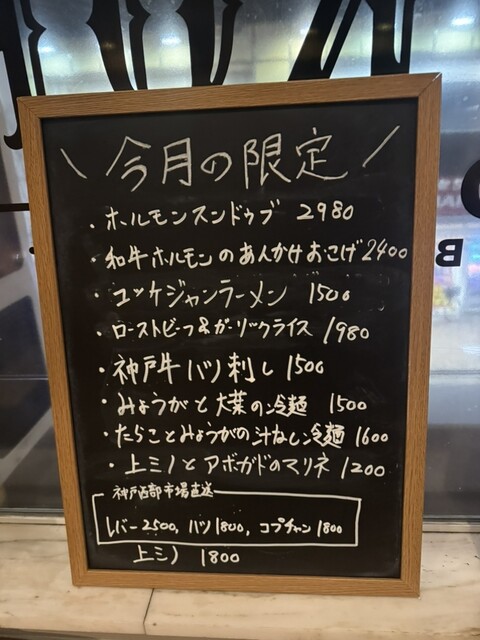 \ 今月の限定 /
・ホルモンスンドゥブ 2980
・和牛ホルモンのあんかけおこげ 2400
・ユッケジャンラーメン 1500
・ローストビーフ&ガーリックライス 1980
・神戸牛ハツ刺し 1500
・みょうがと大葉の冷麺 1500
・たらことみょうがの汁なし冷麺 1600
・上ミノとアボガドのマリネ 1200
神戸西部市場直送
レバー2500, ハツ1800, コプチャン1800
上ミノ 1800